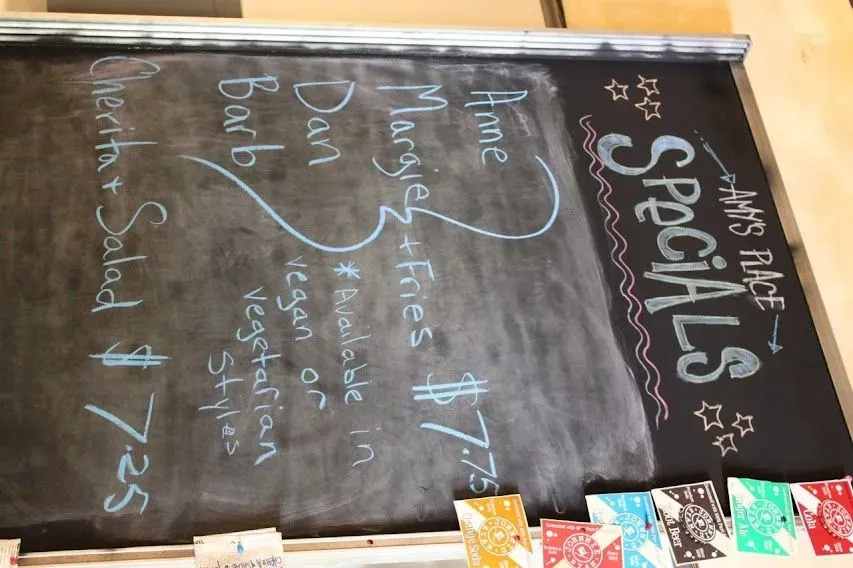 AMY'S PLACE
SPECIALS
Anne
Margie + Fries $7.75
Dan
Barb
*Available in
vegan or
vegetarian
Styles
Cherita + Salad $7.25
Cola
Ale
Root Beer
Orange Soda